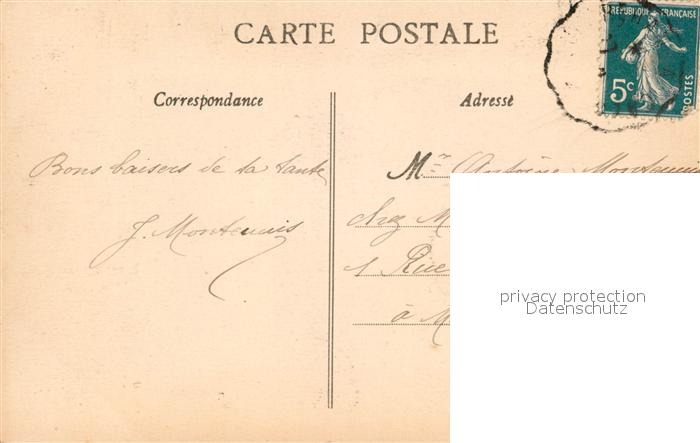 CARTE POSTALE
REPUBLIQUE FRANÇAISE
5c
POSTES
Correspondance
Adresse
Bons baisers de ta tante
J. Montenuis
Mr Antoine Montenuis
chez M
1 Rue
à M
privacy protection
Datenschutz